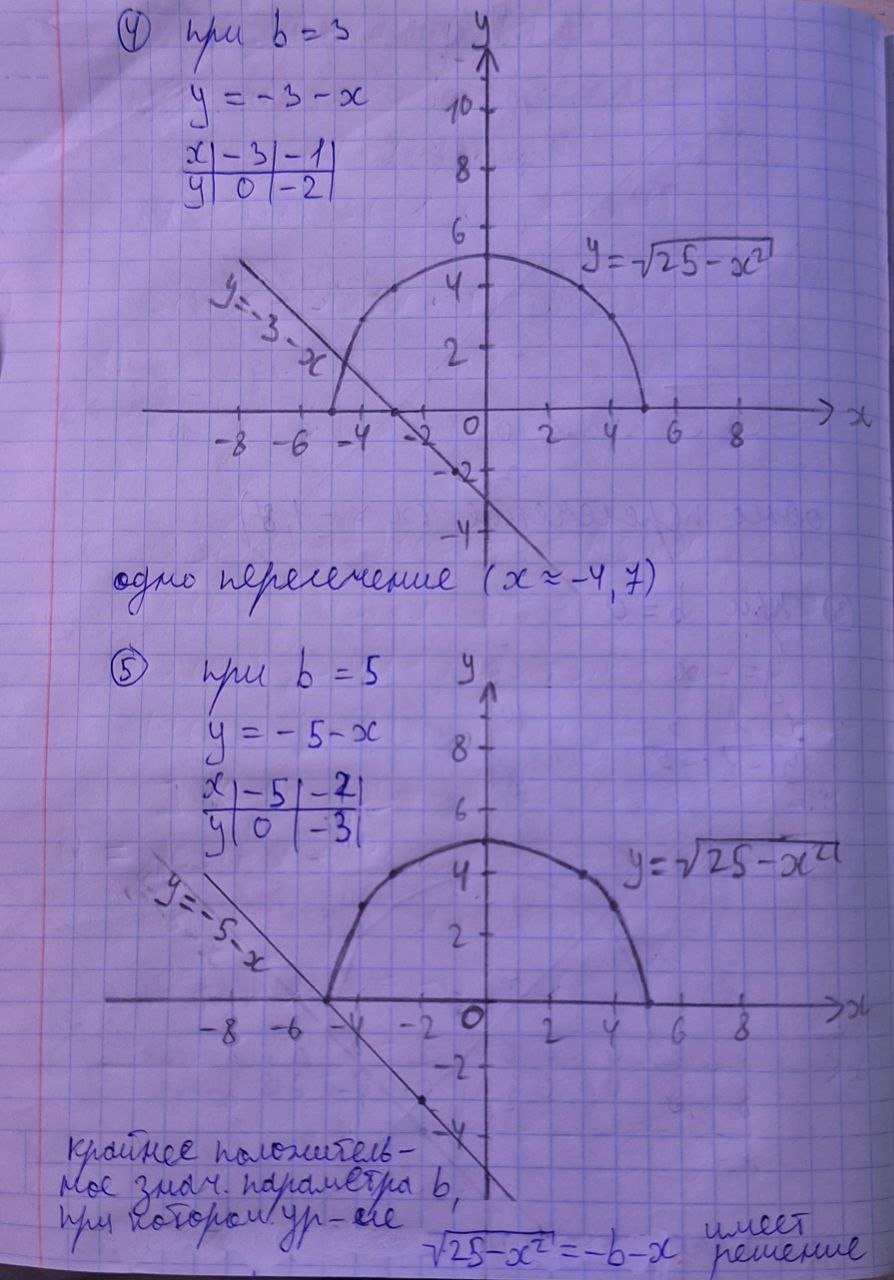 ④ при b = 3
y = -3 - x
x | -3 | -1
y | 0 | -2
y
10
8
6
4
2
y = √25 - x²
y = -3 - x
-8 -6 -4 -2 0 2 4 6 8 x
-2
-4
одно пересечение (x ≈ -4,7)
⑤ при b = 5
y = -5 - x
x | -5 | -2
y | 0 | -3
y
8
6
4
2
y = √25 - x²
y = -5 - x
-8 -6 -4 -2 0 2 4 6 8 x
-2
-4
крайнее положитель-
ное знач. параметра b,
при котором ур-ие
√25 - x² = -b - x имеет
решение